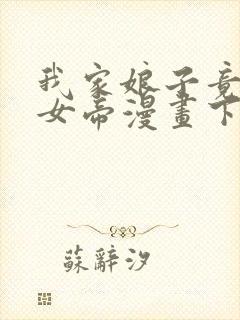 我家娘子竟
女帝漫畫下
蘇辭汐